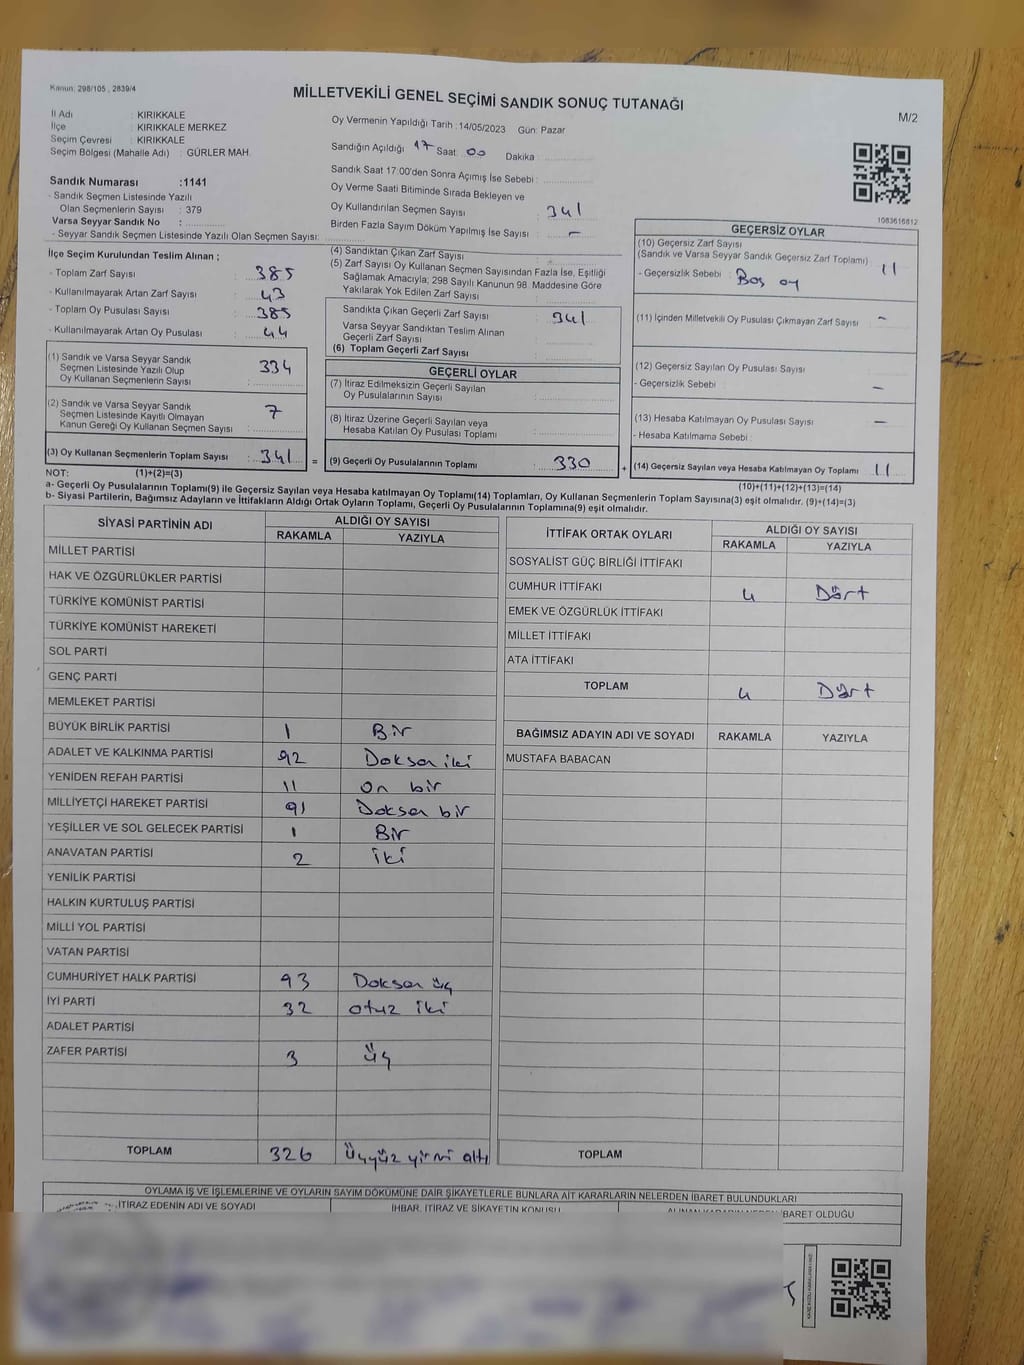 Kanun: 298/105 , 2839/4
MİLLETVEKİLİ GENEL SEÇİMİ SANDIK SONUÇ TUTANAĞI
M/2
İl Adı : KIRIKKALE
İlçe : KIRIKKALE MERKEZ
Seçim Çevresi : KIRIKKALE
Seçim Bölgesi (Mahalle Adı) : GÜRLER MAH.
Sandık Numarası :1141
- Sandık Seçmen Listesinde Yazılı
Olan Seçmenlerin Sayısı : 379
Varsa Seyyar Sandık No :
- Seyyar Sandık Seçmen Listesinde Yazılı Olan Seçmen Sayısı:
Oy Vermenin Yapıldığı Tarih :14/05/2023 Gün: Pazar
Sandığın Açıldığı 17 Saat: 00 Dakika
Sandık Saat 17:00'den Sonra Açımış İse Sebebi :
Oy Verme Saati Bitiminde Sırada Bekleyen ve
Oy Kullandırılan Seçmen Sayısı : 341
Birden Fazla Sayım Döküm Yapılmış İse Sayısı : -
1083616812
İlçe Seçim Kurulundan Teslim Alınan ;
- Toplam Zarf Sayısı : 385
- Kullanılmayarak Artan Zarf Sayısı : 43
- Toplam Oy Pusulası Sayısı : 385
- Kullanılmayarak Artan Oy Pusulası : 44
(1) Sandık ve Varsa Seyyar Sandık
Seçmen Listesinde Yazılı Olup
Oy Kullanan Seçmenlerin Sayısı : 334
(2) Sandık ve Varsa Seyyar Sandık
Seçmen Listesinde Kayıtlı Olmayan
Kanun Gereği Oy Kullanan Seçmen Sayısı : 7
(3) Oy Kullanan Seçmenlerin Toplam Sayısı : 341 =
(4) Sandıktan Çıkan Zarf Sayısı :
(5) Zarf Sayısı Oy Kullanan Seçmen Sayısından Fazla İse, Eşitliği
Sağlamak Amacıyla; 298 Sayılı Kanunun 98. Maddesine Göre
Yakılarak Yok Edilen Zarf Sayısı :
Sandıkta Çıkan Geçerli Zarf Sayısı : 341
Varsa Seyyar Sandıktan Teslim Alınan
Geçerli Zarf Sayısı :
(6) Toplam Geçerli Zarf Sayısı :
GEÇERLİ OYLAR
(7) İtiraz Edilmeksizin Geçerli Sayılan
Oy Pusulalarının Sayısı :
(8) İtiraz Üzerine Geçerli Sayılan veya
Hesaba Katılan Oy Pusulası Toplamı :
(9) Geçerli Oy Pusulalarının Toplamı : 330 +
GEÇERSİZ OYLAR
(10) Geçersiz Zarf Sayısı
(Sandık ve Varsa Seyyar Sandık Geçersiz Zarf Toplamı) : 11
- Geçersizlik Sebebi : Boş oy
(11) İçinden Milletvekili Oy Pusulası Çıkmayan Zarf Sayısı : -
(12) Geçersiz Sayılan Oy Pusulası Sayısı :
- Geçersizlik Sebebi : -
(13) Hesaba Katılmayan Oy Pusulası Sayısı : -
- Hesaba Katılmama Sebebi :
(14) Geçersiz Sayılan veya Hesaba Katılmayan Oy Toplamı : 11
NOT: (1)+(2)=(3)
(10)+(11)+(12)+(13)=(14)
a- Geçerli Oy Pusulalarının Toplamı(9) ile Geçersiz Sayılan veya Hesaba katılmayan Oy Toplamı(14) Toplamları, Oy Kullanan Seçmenlerin Toplam Sayısına(3) eşit olmalıdır. (9)+(14)=(3)
b- Siyasi Partilerin, Bağımsız Adayların ve İttifakların Aldığı Ortak Oyların Toplamı, Geçerli Oy Pusulalarının Toplamına(9) eşit olmalıdır.
SİYASİ PARTİNİN ADI ALDIĞI OY SAYISI
RAKAMLA YAZIYLA
MİLLET PARTİSİ
HAK VE ÖZGÜRLÜKLER PARTİSİ
TÜRKİYE KOMÜNİST PARTİSİ
TÜRKİYE KOMÜNİST HAREKETİ
SOL PARTİ
GENÇ PARTİ
MEMLEKET PARTİSİ
BÜYÜK BİRLİK PARTİSİ 1 Bir
ADALET VE KALKINMA PARTİSİ 92 Doksan iki
YENİDEN REFAH PARTİSİ 11 on bir
MİLLİYETÇİ HAREKET PARTİSİ 91 Doksan bir
YEŞİLLER VE SOL GELECEK PARTİSİ 1 Bir
ANAVATAN PARTİSİ 2 iki
YENİLİK PARTİSİ
HALKIN KURTULUŞ PARTİSİ
MİLLİ YOL PARTİSİ
VATAN PARTİSİ
CUMHURİYET HALK PARTİSİ 93 Doksan üç
İYİ PARTİ 32 otuz iki
ADALET PARTİSİ
ZAFER PARTİSİ 3 üç
TOPLAM 326 üçyüz yirmi altı
İTTİFAK ORTAK OYLARI ALDIĞI OY SAYISI
RAKAMLA YAZIYLA
SOSYALİST GÜÇ BİRLİĞİ İTTİFAKI
CUMHUR İTTİFAKI 4 Dört
EMEK VE ÖZGÜRLÜK İTTİFAKI
MİLLET İTTİFAKI
ATA İTTİFAKI
TOPLAM 4 Dört
BAĞIMSIZ ADAYIN ADI VE SOYADI RAKAMLA YAZIYLA
MUSTAFA BABACAN
TOPLAM
OYLAMA İŞ VE İŞLEMLERİNE VE OYLARIN SAYIM DÖKÜMÜNE DAİR ŞİKAYETLERLE BUNLARA AİT KARARLARIN NELERDEN İBARET BULUNDUKLARI
İTİRAZ EDENİN ADI VE SOYADI
İHBAR, İTİRAZ VE ŞİKAYETİN KONUSU
İBARET OLDUĞU